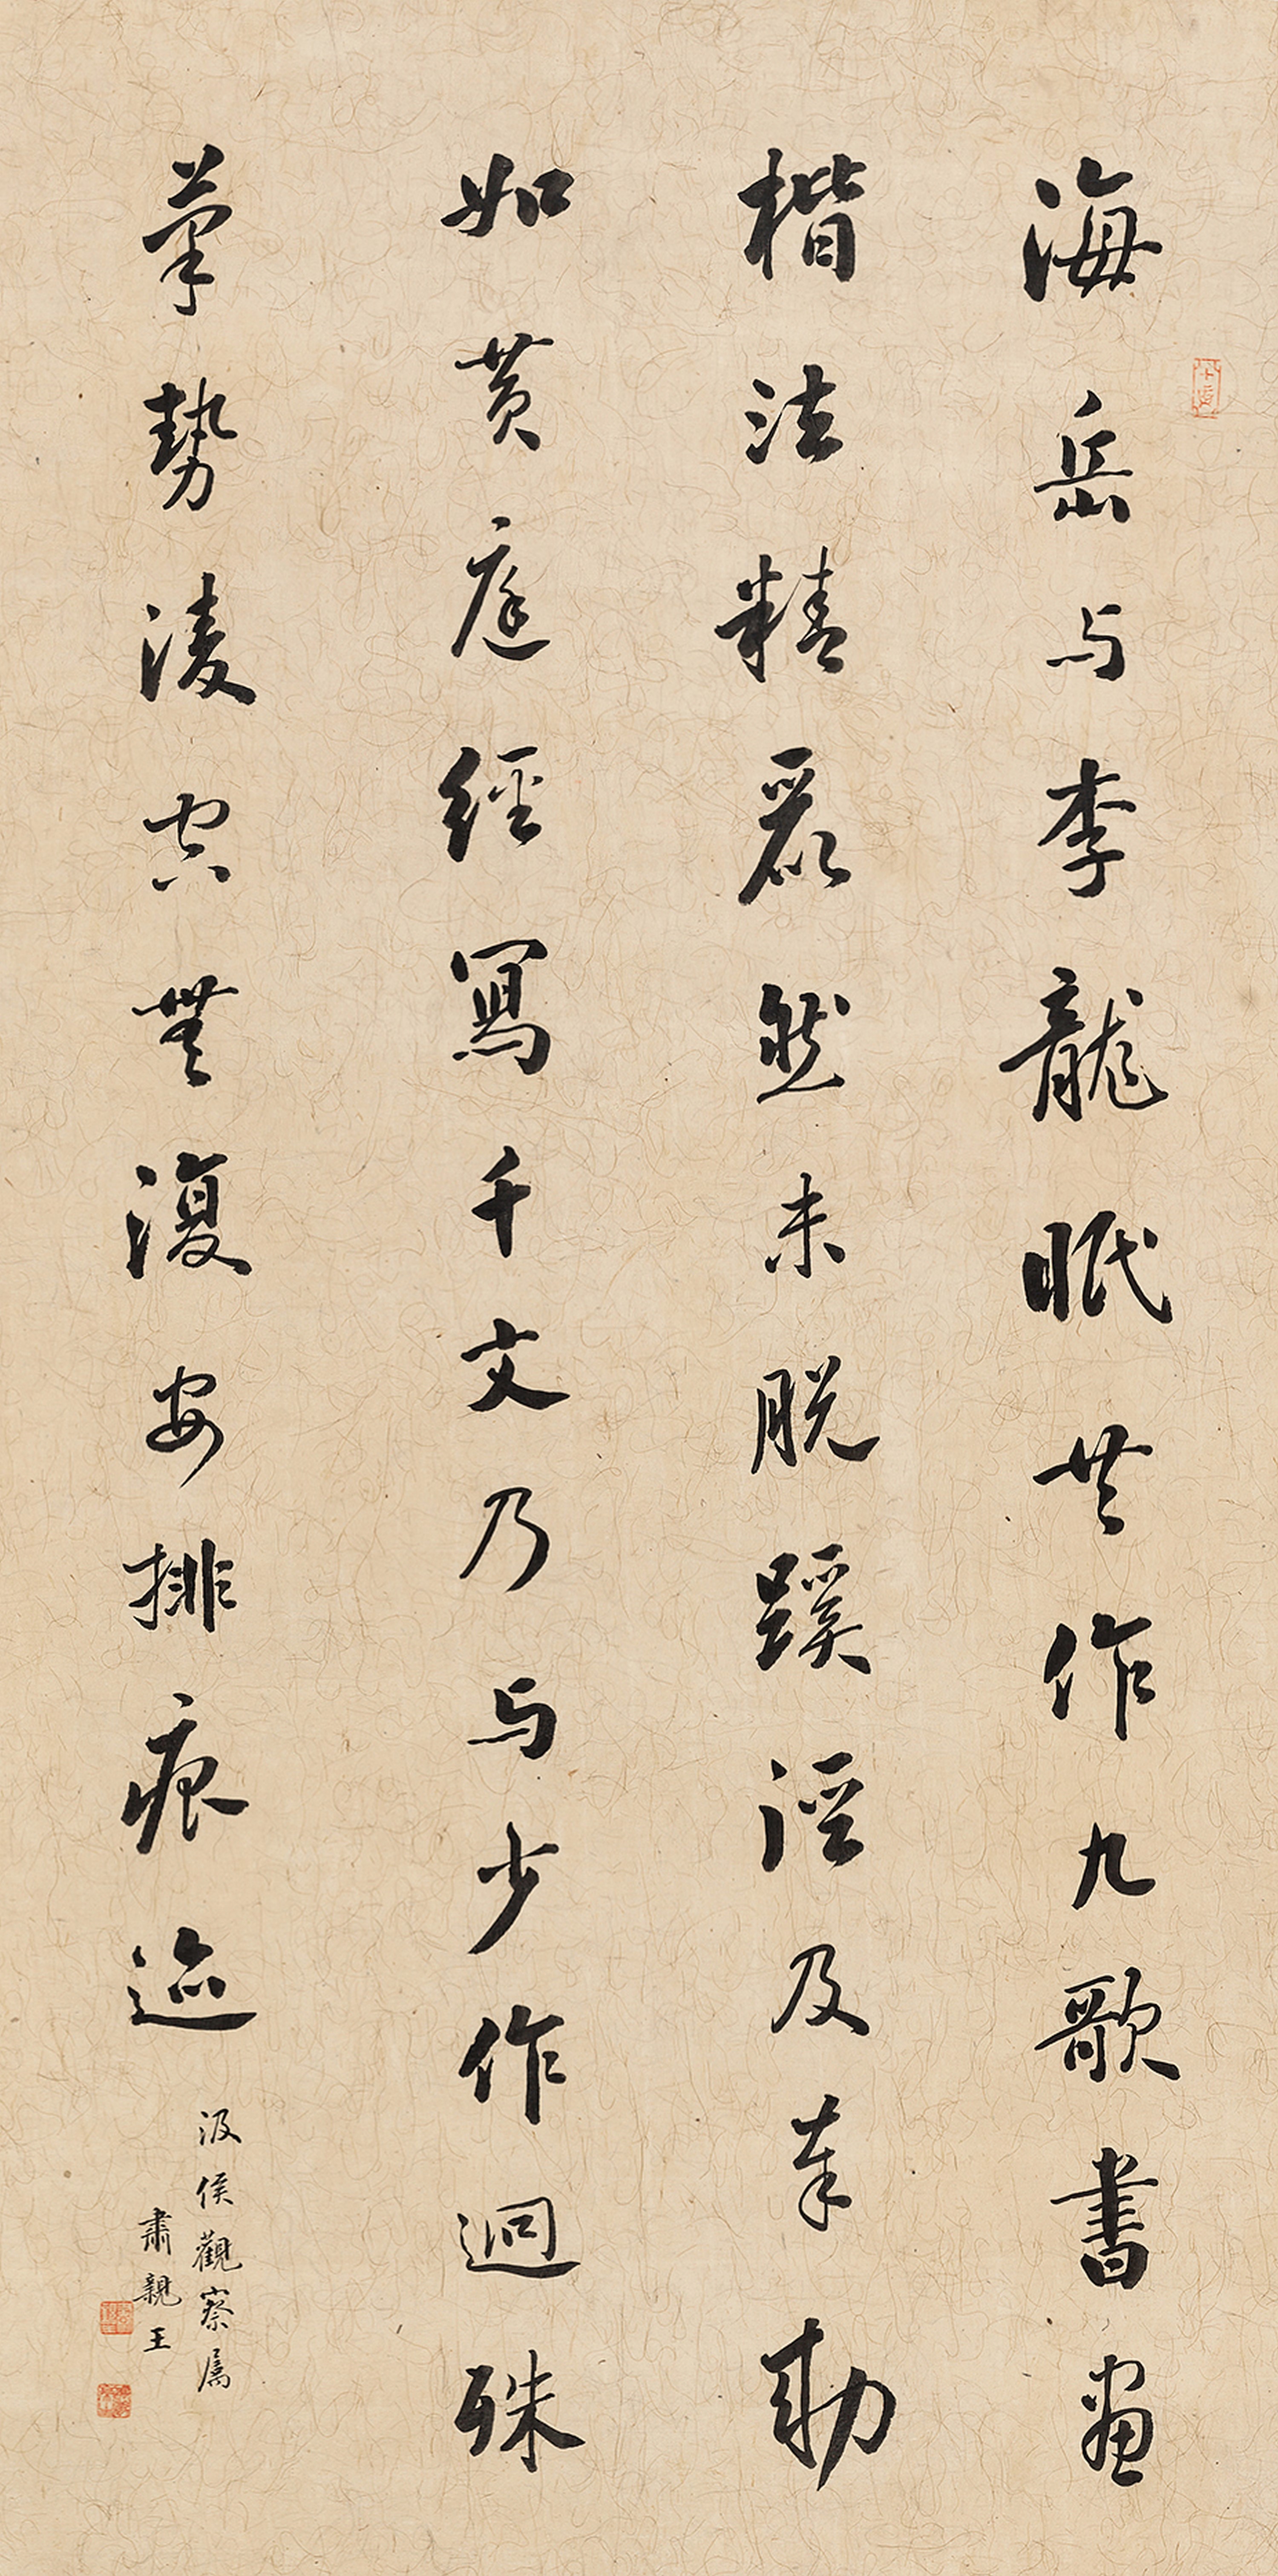 海岳与李龍眠共作九歌書畫
楷法精麗然未脱蹊徑及奉勅
如黄庭經寫千文乃与少作迥殊
筆勢凌空無復安排痕迹
汲侯觀察属
肅親王